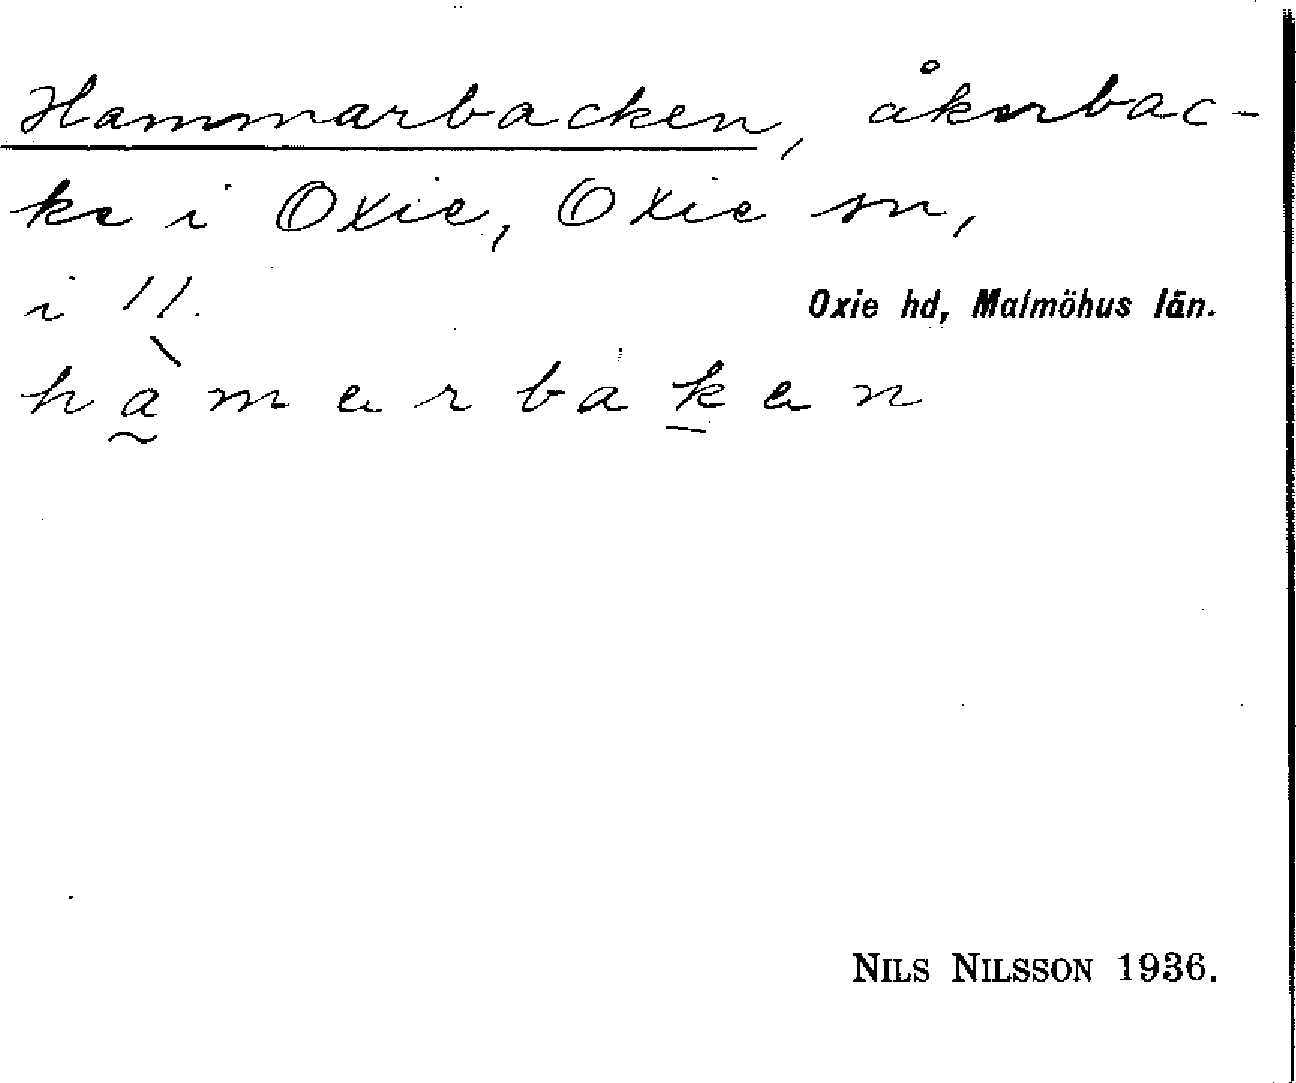 Hammarbacken, åkerbac-
ke i Oxie, Oxie sn,
i 11.
Oxie hd, Malmöhus län.
hàmarbakan
NILS NILSSON 1936.